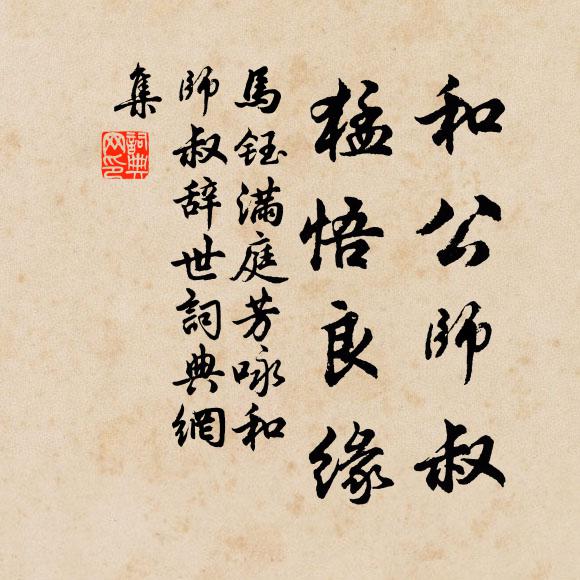 和公師叔
猛悟良緣
馬鈺滿庭芳咏和
師叔辞世詞典網
集
詞典
网印